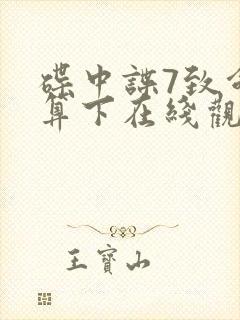 碟中諜7致命
算下在綫觀
王寶山